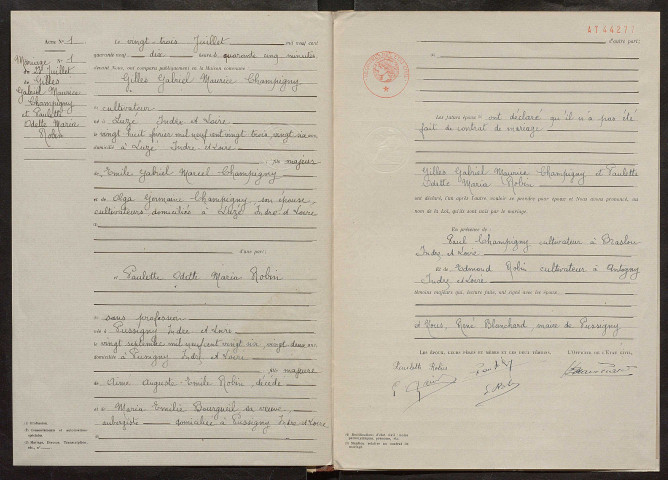 Acte N° 1
Mariage N° 1
du 23 Juillet
de Gilles
Gabriel Maurice
Champigny
et Paulette
Odette Maria
Robin
Le vingt-trois Juillet mil neuf cent
quarante neuf dix heures quarante cinq minutes
devant Nous, ont comparu publiquement en la Maison commune :
Gilles Gabriel Maurice Champigny
cultivateur
né à Luzé Indre et Loire
le vingt huit février mil neuf cent vingt trois, vingt six ans
domicilié à Luzé Indre et Loire
majeur
Emile Gabriel Marcel Champigny
Olga Germaine Champigny son épouse,
cultivateurs domiciliés à Luzé Indre et Loire
d'une part;
Paulette Odette Maria Robin
sans profession
née à Pussigny Indre et Loire
le vingt septembre mil neuf cent vingt six, vingt deux ans
domiciliée à Pussigny Indre et Loire
majeure
de Aimé Auguste Emile Robin décédé
Maria Emilie Bourgueil sa veuve,
aubergiste domiciliée à Pussigny Indre et Loire
(1) Profession.
d'autre part;
Les futurs époux ont déclaré qu'il n'a pas été
fait de contrat de mariage
Gilles Gabriel Maurice Champigny et Paulette
Odette Maria Robin
ont déclaré, l'un après l'autre, vouloir se prendre pour époux et Nous avons prononcé, au
nom de la Loi, qu'ils sont unis par le mariage.
En présence de :
Paul Champigny cultivateur à Braslou
Indre et Loire
et de Edmond Robin cultivateur à Antogny
Indre et Loire
témoins majeurs qui, lecture faite, ont signé avec les époux
et Nous, René Blanchard, maire de Pussigny
LES ÉPOUX, LEURS PÈRES ET MÈRES ET LES DEUX TÉMOINS, L'OFFICIER DE L'ÉTAT CIVIL,